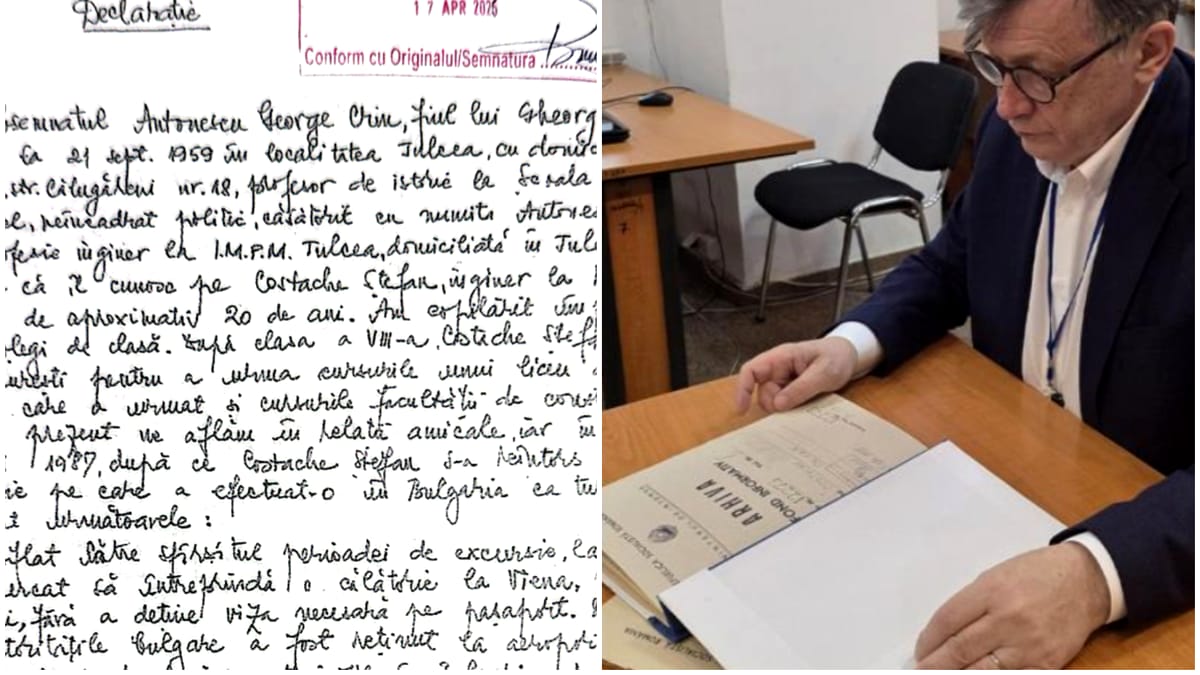 Declarație
17 APR 2025
Conform cu Originalul/Semnatura
semnatul Antonescu George Crin, fiul lui Gheorg
la 21 sept. 1959 în localitatea Tulcea, cu domic
str. Călugăreni nr. 18, profesor de istorie la Școala
neîncadrat politic, căsătorit cu numita Antones
fesie inginer la I.M.P.M. Tulcea, domiciliată în Tul
că îl cunosc pe Costache Ștefan, inginer la
de aproximativ 20 de ani. Am copilărit îm
legi de clasă. După clasa a VIII-a, Costache Ștef
urești pentru a urma cursurile unui liceu
care a urmat și cursurile facultății de cons
prezent ne aflăm în relații amicale, iar în
1987, după ce Costache Ștefan s-a reîntors
ie pe care a efectuat-o în Bulgaria ca tu
următoarele :
flat către sfîrșitul perioadei de excursie, la
ercat să întreprindă o călătorie la Viena,
i, fără a deține viza necesară pe pașaport.
toritățile bulgare a fost reținut la aeropo
REPUBLICA SOCIALISTĂ ROMÂNIA
ARHIVA
FOND INFORMATIV
SOCIALISTĂ ROMÂNIA